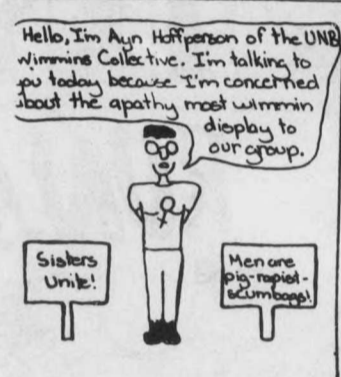 Hello, I'm Ayn Hoffperson of the UNB
Wimmins Collective. I'm talking to
you today because I'm concerned
about the apathy most wimmin
display to
our group.
Sisters
Unite!
Men are
pig-rapist-
scumbags!